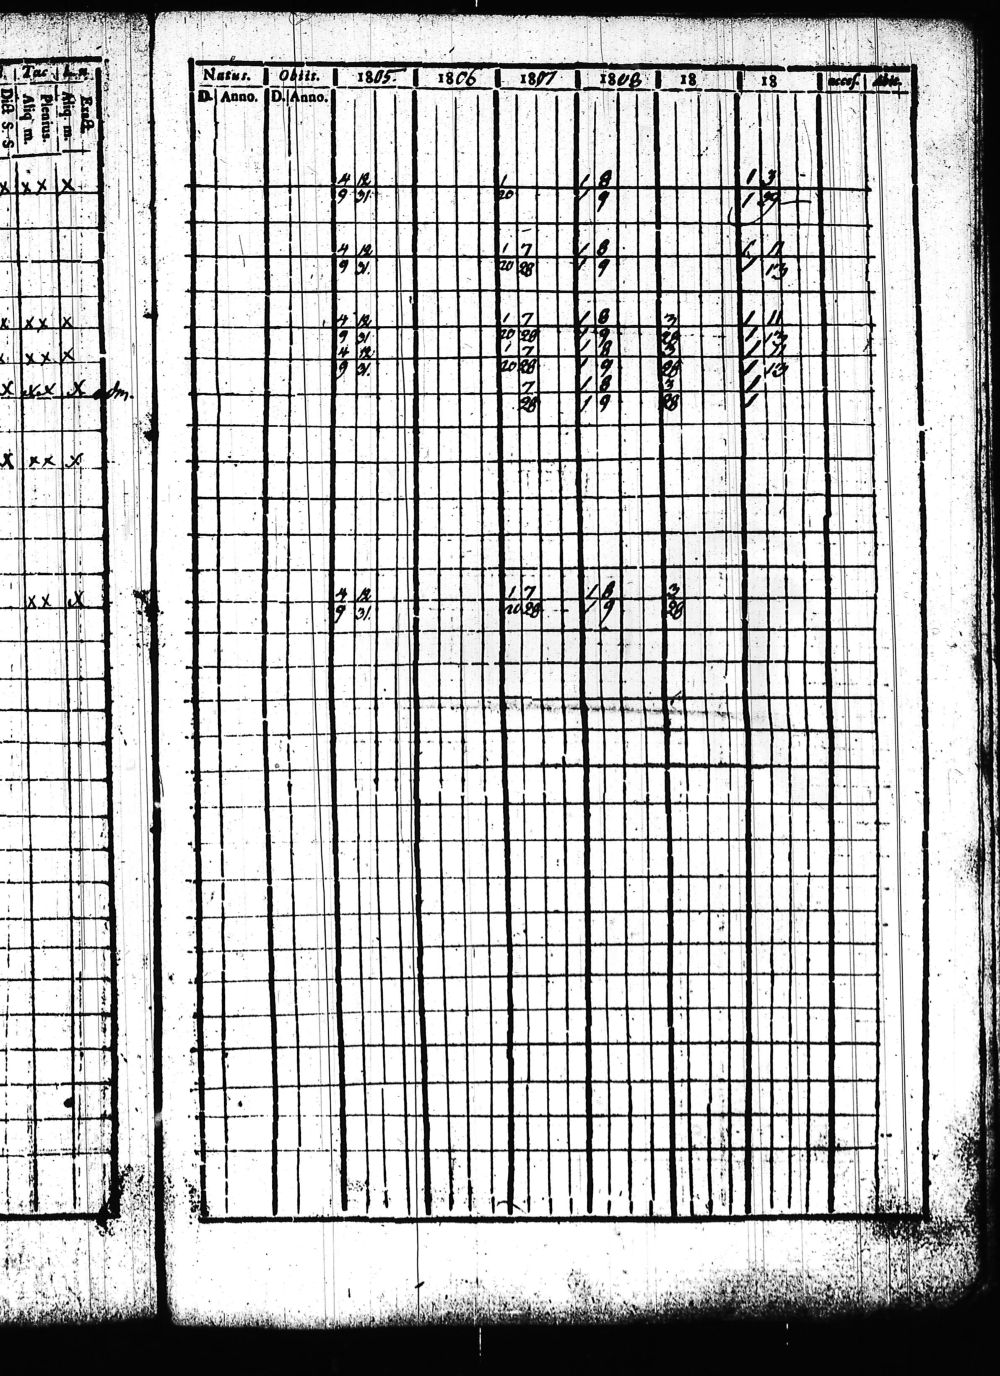 Natus. Obiit. 1805. 1806 1807 1808 18 18 accef. Abit.
D. Anno. D. Anno.
Aliq m. Plenius. Aliq. m.
x x x x 4 12 1 1 8 1 3
9 31. 20 1 9 1 29
4 12 1 7 1 8 1 11
9 31. 20 28 1 9 1 13
x x x x 4 12 1 7 1 8 3 1 11
9 31 20 28 1 9 28 1 13
x x x 4 12 1 7 1 8 3 1 11
9 31. 20 28 1 9 28 1 13
x x x x adm. 7 1 8 3 1
28 1 9 28 1
x x x x
x x x 4 12 1 7 1 8 3
9 31. 20 28 1 9 28